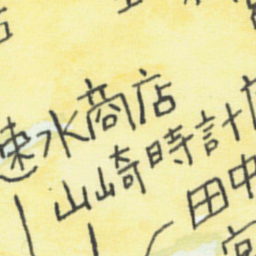 速水商店
山崎時計
田中